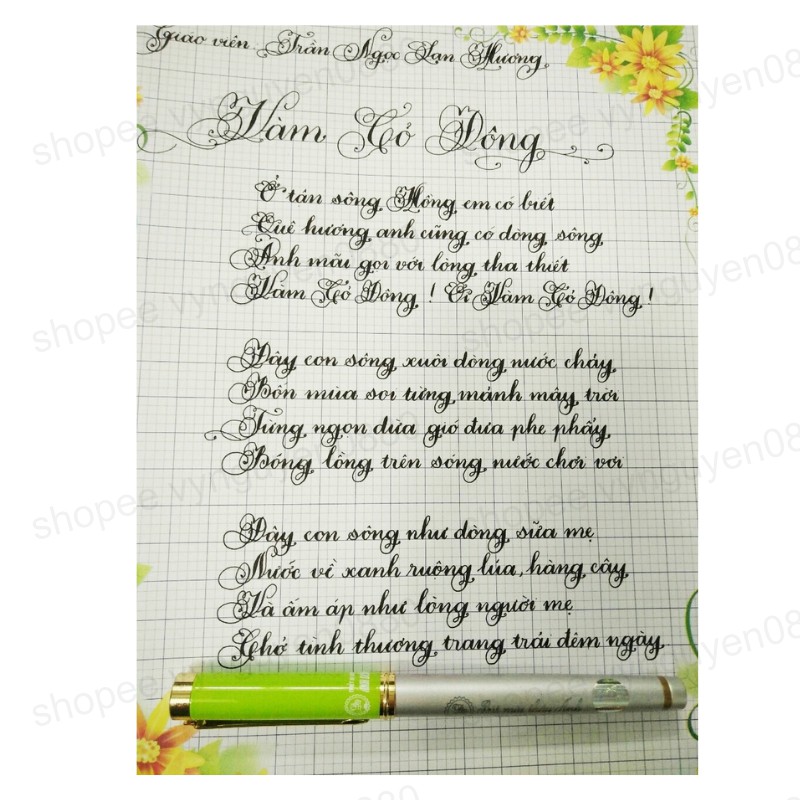 Giáo viên: Trần Ngọc Lan Hương
Vàm Cỏ Đông
Ở tân sông Hồng em có biết
Quê hương anh cũng có dòng sông
Anh mãi gọi với lòng tha thiết
Vàm Cỏ Đông ! Ơi Vàm Cỏ Đông !
Đây con sông xuôi dòng nước chảy
Bốn mùa soi từng mảnh mây trời
Từng ngọn dừa gió đưa phe phẩy
Bóng lồng trên sóng nước chơi vơi
Đây con sông như dòng sữa mẹ
Nước về xanh ruộng lúa, hàng cây
Và ấm áp như lòng người mẹ
Chở tình thương trang trải đêm ngày